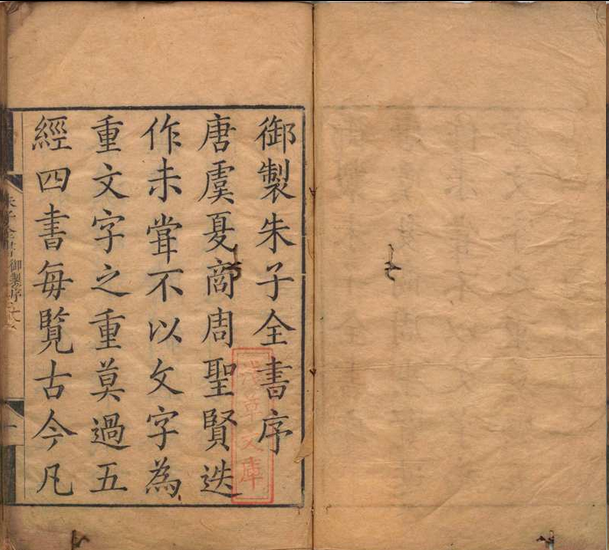 御製朱子全書序
唐虞夏商周聖賢迭
作未甞不以文字為
重文字之重莫過五
經四書每覽古今凡
朱子全書御製序
一
淺草文庫